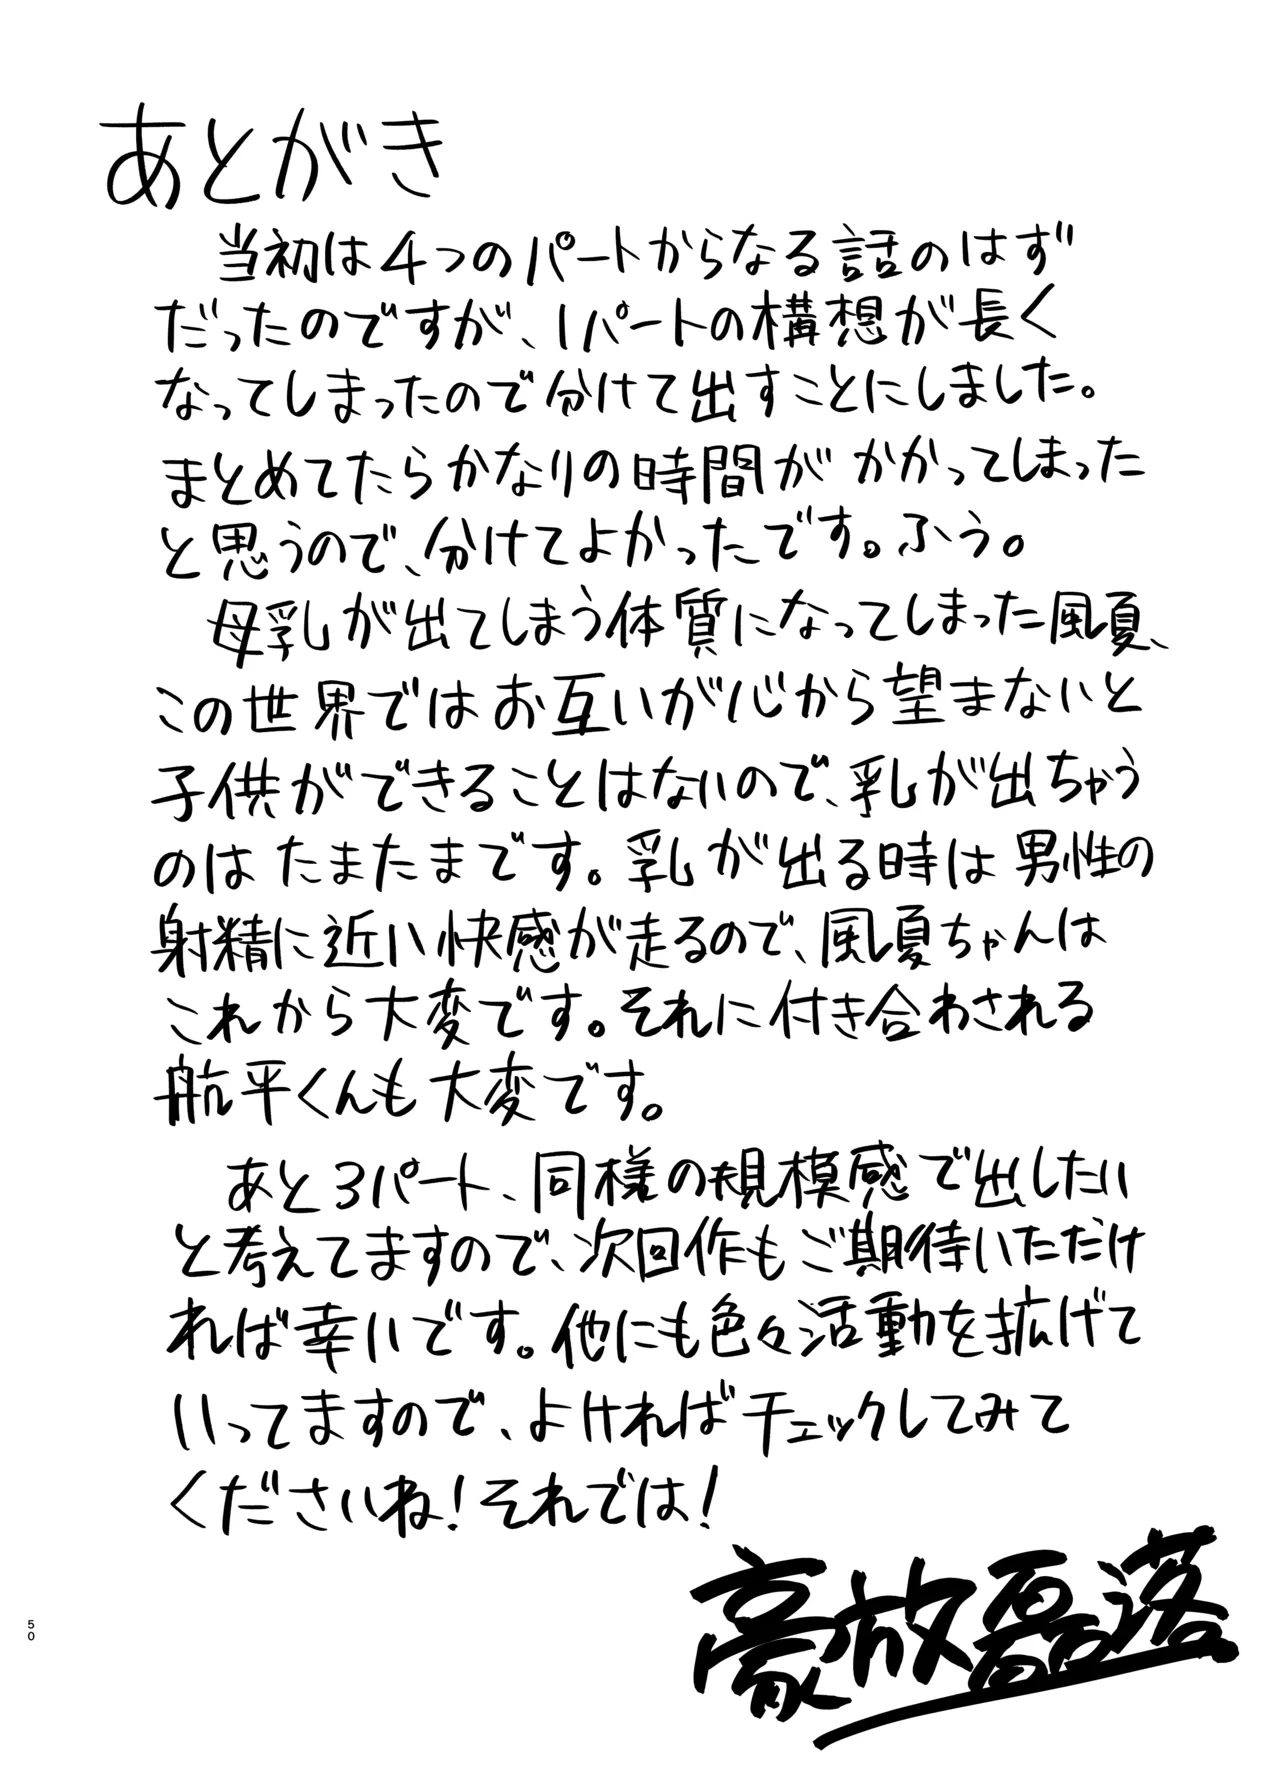 あとがき
当初は4つのパートからなる話のはず
だったのですが、1パートの構想が長く
なってしまったので分けて出すことにしました。
まとめてたらかなりの時間がかかってしまった
と思うので、分けてよかったです。ふう。
母乳が出てしまう体質になってしまった風夏、
この世界ではお互いが心から望まないと
子供ができることはないので、乳が出ちゃう
のはたまたまです。乳が出る時は男性の
射精に近い快感が走るので、風夏ちゃんは
これから大変です。それに付き合わされる
航平くんも大変です。
あと3パート、同様の規模感で出したい
と考えてますので、次回作もご期待いただけ
れば幸いです。他にも色々活動を拡げて
いってますので、よければチェックしてみて
くださいね!それでは!
豪放磊落
50